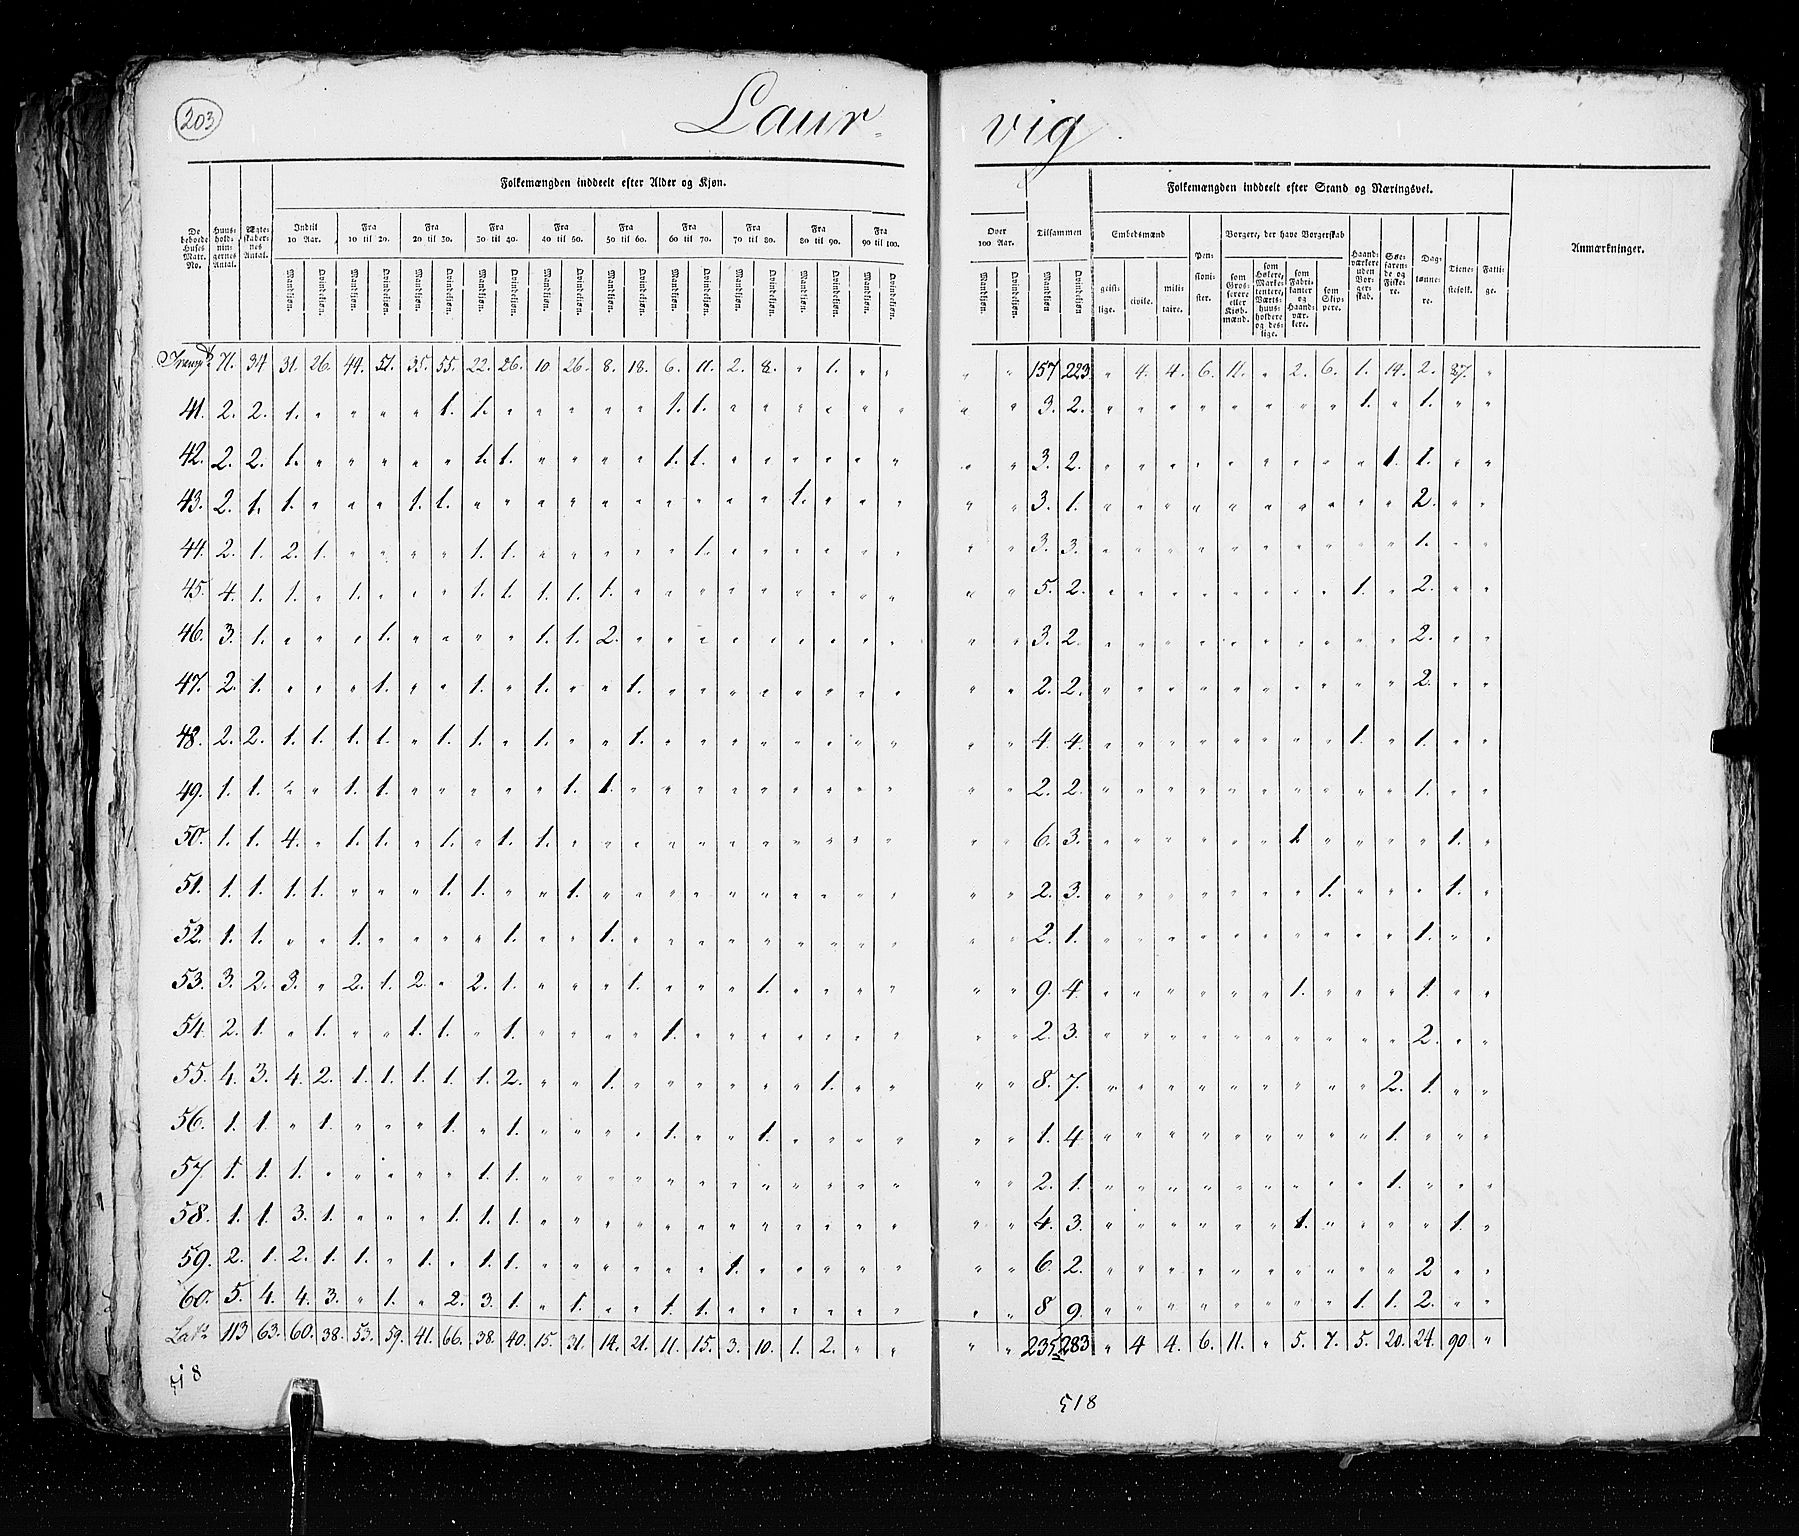 203
Laur=
vig.
Folkemængden inddeelt efter Alder og Kjøn.
Folkemængden inddeelt efter Stand og Næringsvei.
De beboede Huses Matr. No. Huus-hold-nin-gernes Antal. Ægte-skaber-nes Antal. Indtil 10 Aar. Fra 10 til 20. Fra 20 til 30. Fra 30 til 40. Fra 40 til 50. Fra 50 til 60. Fra 60 til 70. Fra 70 til 80. Fra 80 til 90. Fra 90 til 100. Over 100 Aar. Tilsammen
Mandkjøn. Qvindekjøn. Mandkjøn. Qvindekjøn. Mandkjøn. Qvindekjøn. Mandkjøn. Qvindekjøn. Mandkjøn. Qvindekjøn. Mandkjøn. Qvindekjøn. Mandkjøn. Qvindekjøn. Mandkjøn. Qvindekjøn. Mandkjøn. Qvindekjøn. Mandkjøn. Qvindekjøn. Mandkjøn. Qvindekjøn. Mandkjøn Qvindekjøn.
Embedsmænd geist-lige. civile. mili-taire. Pen-sioni-ster. Borgere, der have Borgerskab som Gros-serere eller Kjøb-mænd. som Høkere, Marke-tentere, Værts-huus-holdere og des-lige. som Fabri-kanter og Haand-vær-kere. som Skip-pere. Haand-værkere uden Bor-ger-skab. Søe-faren-de og Fiske-re. Dag-lønne-re. Tiene-stefolk. Fatti-ge. Anmærkninger.
Transpt. 71. 34 31. 26. 44. 51. 35. 55. 22. 26. 10. 26. 8. 18. 6. 11. 2. 8. " 1. " " " " 157 223 " 4. 4. 6. 11. " 2. 6. 1. 14. 2. 87. "
41. 2. 2. 1. " " " " 1. 1. " " " " " 1. 1. " " " " " " " " 3. 2. " " " " " " " " 1. " 1. " "
42. 2. 2. 1. " " " " " 1. 1. " " " " 1. 1. " " " " " " " " 3. 2. " " " " " " " " " 1. 1. " "
43. 2. 1. 1. " " " 1. 1. " " " " " " " " " " 1. " " " " " 3. 1. " " " " " " " " " " 2. " "
44. 2. 1. 2. 1. " " " " 1. 1. " " " " " 1. " " " " " " " " 3. 3. " " " " " " " " " " 1. " "
45. 4. 1. 1. " 1. " " " 1. 1. 1. 1. 1. " " " " " " " " " " " 5. 2. " " " " " " " " 1. " 2. " "
46. 3. 1. " " " 1. " " " " 1. 1. 2. " " " " " " " " " " " 3. 2. " " " " " " " " " " 2. " "
47. 2. 1. " " " 1. " " 1. " 1. " " 1. " " " " " " " " " " 2. 2. " " " " " " " " " " 2. " "
48. 2. 2. 1. 1. 1. 1. " 1. 1. " 1. " " 1. " " " " " " " " " " 4. 4. " " " " " " " " 1. " 1. " "
49. 1. 1. " " 1. 1. " " " " " 1. 1. " " " " " " " " " " " 2. 2. " " " " " " " " " " 1. " "
50. 1. 1. 4. " 1. 1. " 1. " 1. 1. " " " " " " " " " " " " " 6. 3. " " " " " " 1. " " " " 1. "
51. 1. 1. 1. 1. " " " 1. 1. " " 1. " " " " " " " " " " " " 2. 3. " " " " " " " 1. " " " 1. "
52. 1. 1. " " 1. " " " " 1. " " 1. " " " " " " " " " " " 2. 1. " " " " " " " " " " 1. " "
53. 3. 2. 3. " 2. 1. 2. " 2. 1. " " " 1. " " " 1. " " " " " " 9. 4. " " " " " " 1. " " " 1. " "
54. 2. 1. " 1. " " 1. 1. " 1. " " " " 1. " " " " " " " " " 2. 3. " " " " " " " " " " 2. " "
55. 4. 3. 4. 2. 1. 1. 1. 1. 1. 2. " " 1. " " " " " " 1. " " " " 8. 7. " " " " " " " " " 2. 1. " "
56. 1. 1. " 1. " " " 1. " 1. " " " " 1. " " 1. " " " " " " 1. 4 " " " " " " " " " 1. " " "
57. 1. 1. 1. " " " " " 1. 1. " " " " " " " " " " " " " " 2. 1. " " " " " " " " " 1. " " "
58. 1. 1. 3. 1. " " " 1. 1. 1. " " " " " " " " " " " " " " 4. 3. " " " " " " 1. " " " " 1. "
59. 2. 1. 2. 1. 1. " 1. " 1. 1. " " " " " " 1. " " " " " " " 6. 2. " " " " " " " " " " 2 " "
60. 5. 4. 4. 3. " 1. " 2. 3. 1. " 1. " " 1. 1. " " " " " " " " 8 9. " " " " " " " " 1. 1. 2. " "
Lats 113 63. 60. 38. 53. 59. 41. 66. 38. 40. 15. 31. 14. 21. 11. 15. 3. 10. 1. 2. " " " " 235 283 " 4 4. 6. 11. " 5. 7. 5. 20. 24. 90 "
518
518